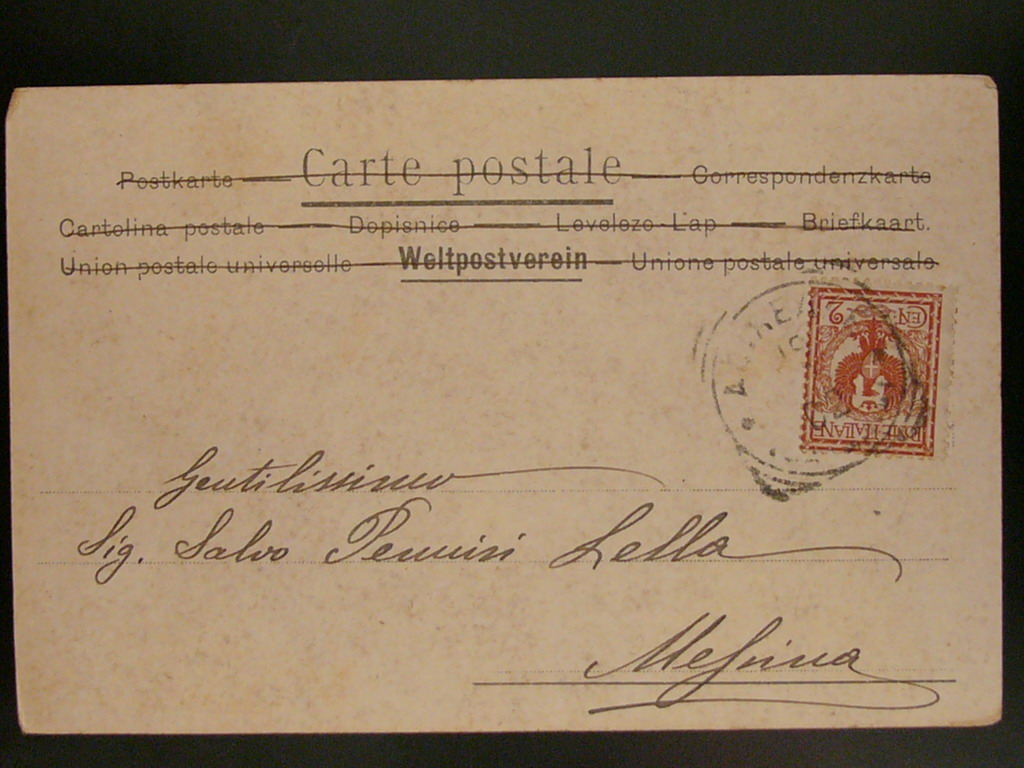 Carte postale
Postkarte — Correspondenzkarte
Cartolina postale — Dopisnice — Levelezo-Lap — Briefkaart.
Union postale universelle — Weltpostverein — Unione postale universale
CEN: 2
POSTE ITALIANE
Gentilissimo
Sig. Salvo Pennisi Lella
Messina